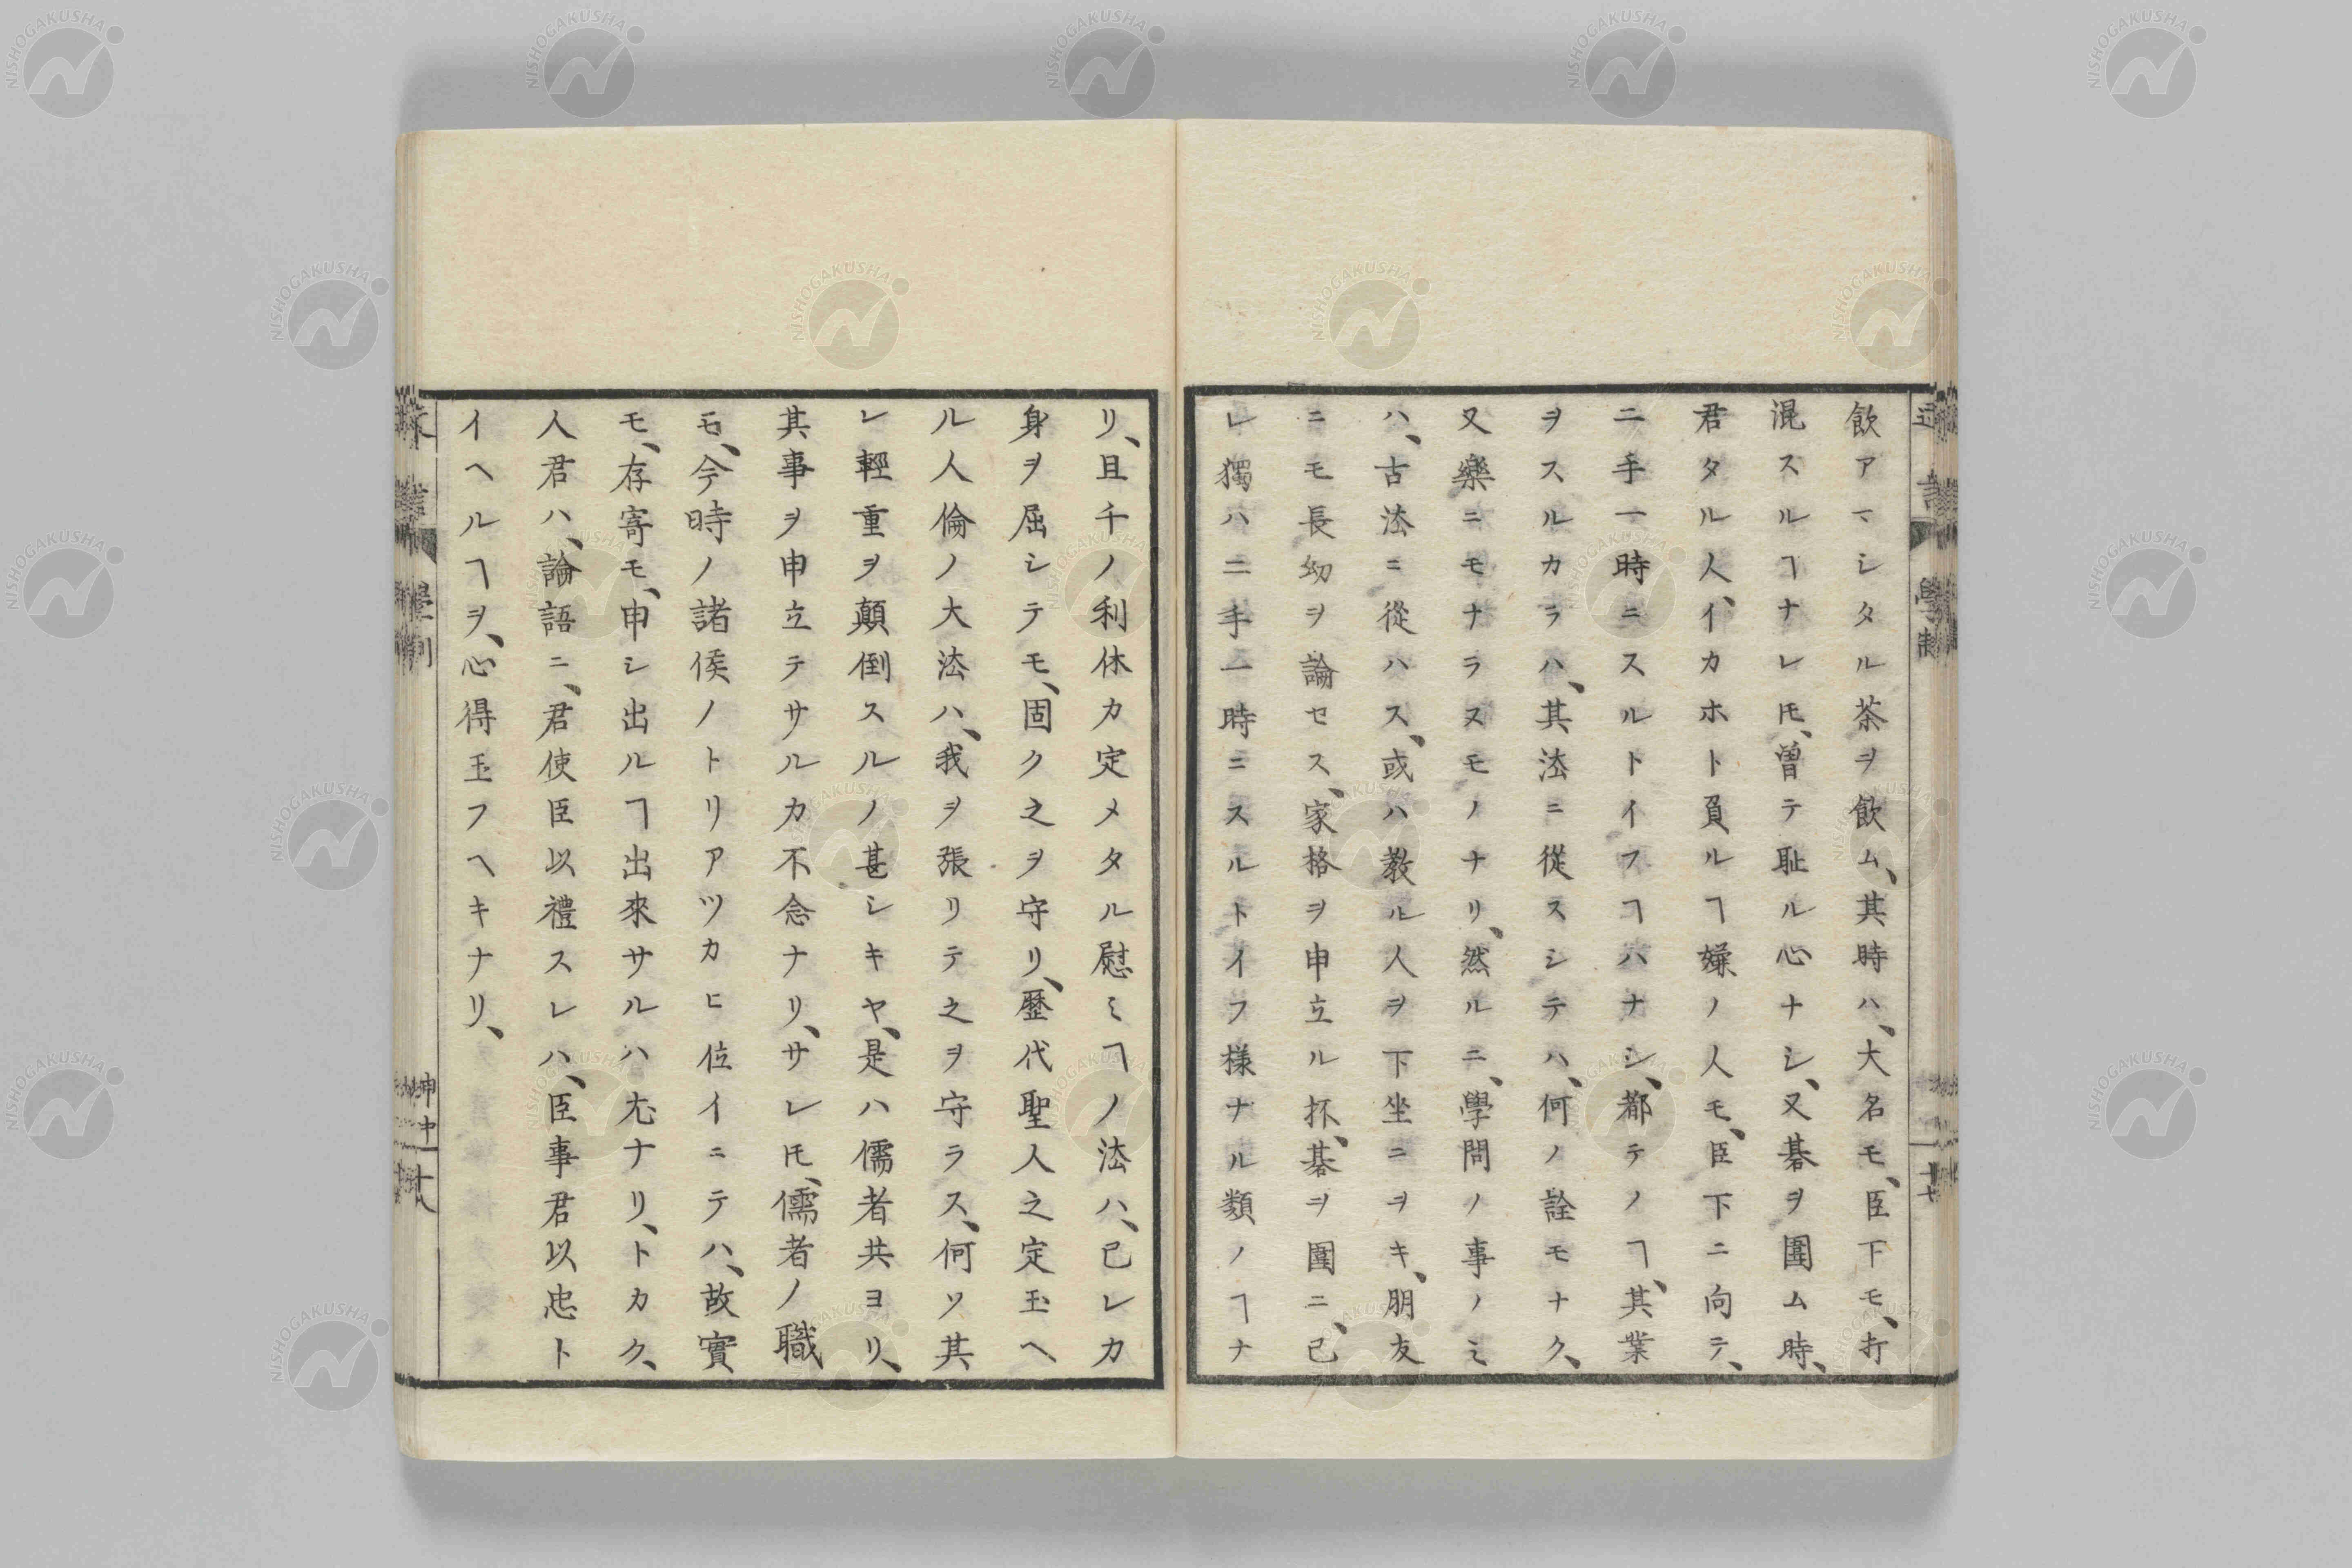 飲アマシタル茶ヲ飲ム、其時ハ、大名モ、臣下モ、打
混スルヿナレ𪜈、曽テ耻ル心ナシ、又碁ヲ圍ム時、
君タル人、イカホト負ルヿ嫌ノ人モ、臣下ニ向テ、
二手一時ニスルトイフヿハナシ、都テノヿ、其業
ヲスルカラハ、其法ニ從スシテハ、何ノ詮モナク、
又樂ニモナラヌモノナリ、然ルニ、學問ノ事ノミ
ハ、古法ニ從ハス、或ハ教ル人ヲ下坐ニヲキ、朋友
ニモ長幼ヲ論セス、家格ヲ申立ル抔、碁ヲ圍ニ、已
レ獨ハ二手一時ニスルトイフ樣ナル類ノヿナ
リ、且千ノ利休カ定メタル慰ミヿノ法ハ、已レカ
身ヲ屈シテモ、固ク之ヲ守リ、歷代聖人之定玉ヘ
ル人倫ノ大法ハ、我ヲ張リテ之ヲ守ラス、何ソ其
レ輕重ヲ顛倒スルノ甚シキヤ、是ハ儒者共ヨリ、
其事ヲ申立テサルカ不念ナリ、サレ𪜈、儒者ノ職
モ、今時ノ諸侯ノトリアツカヒ位イニテハ、故實
モ、存寄モ、申シ出ルヿ出來サルハ尤ナリ、トカク、
人君ハ、論語ニ、君使臣以禮スレハ、臣事君以忠ト
イヘルヿヲ、心得玉フヘキナリ、